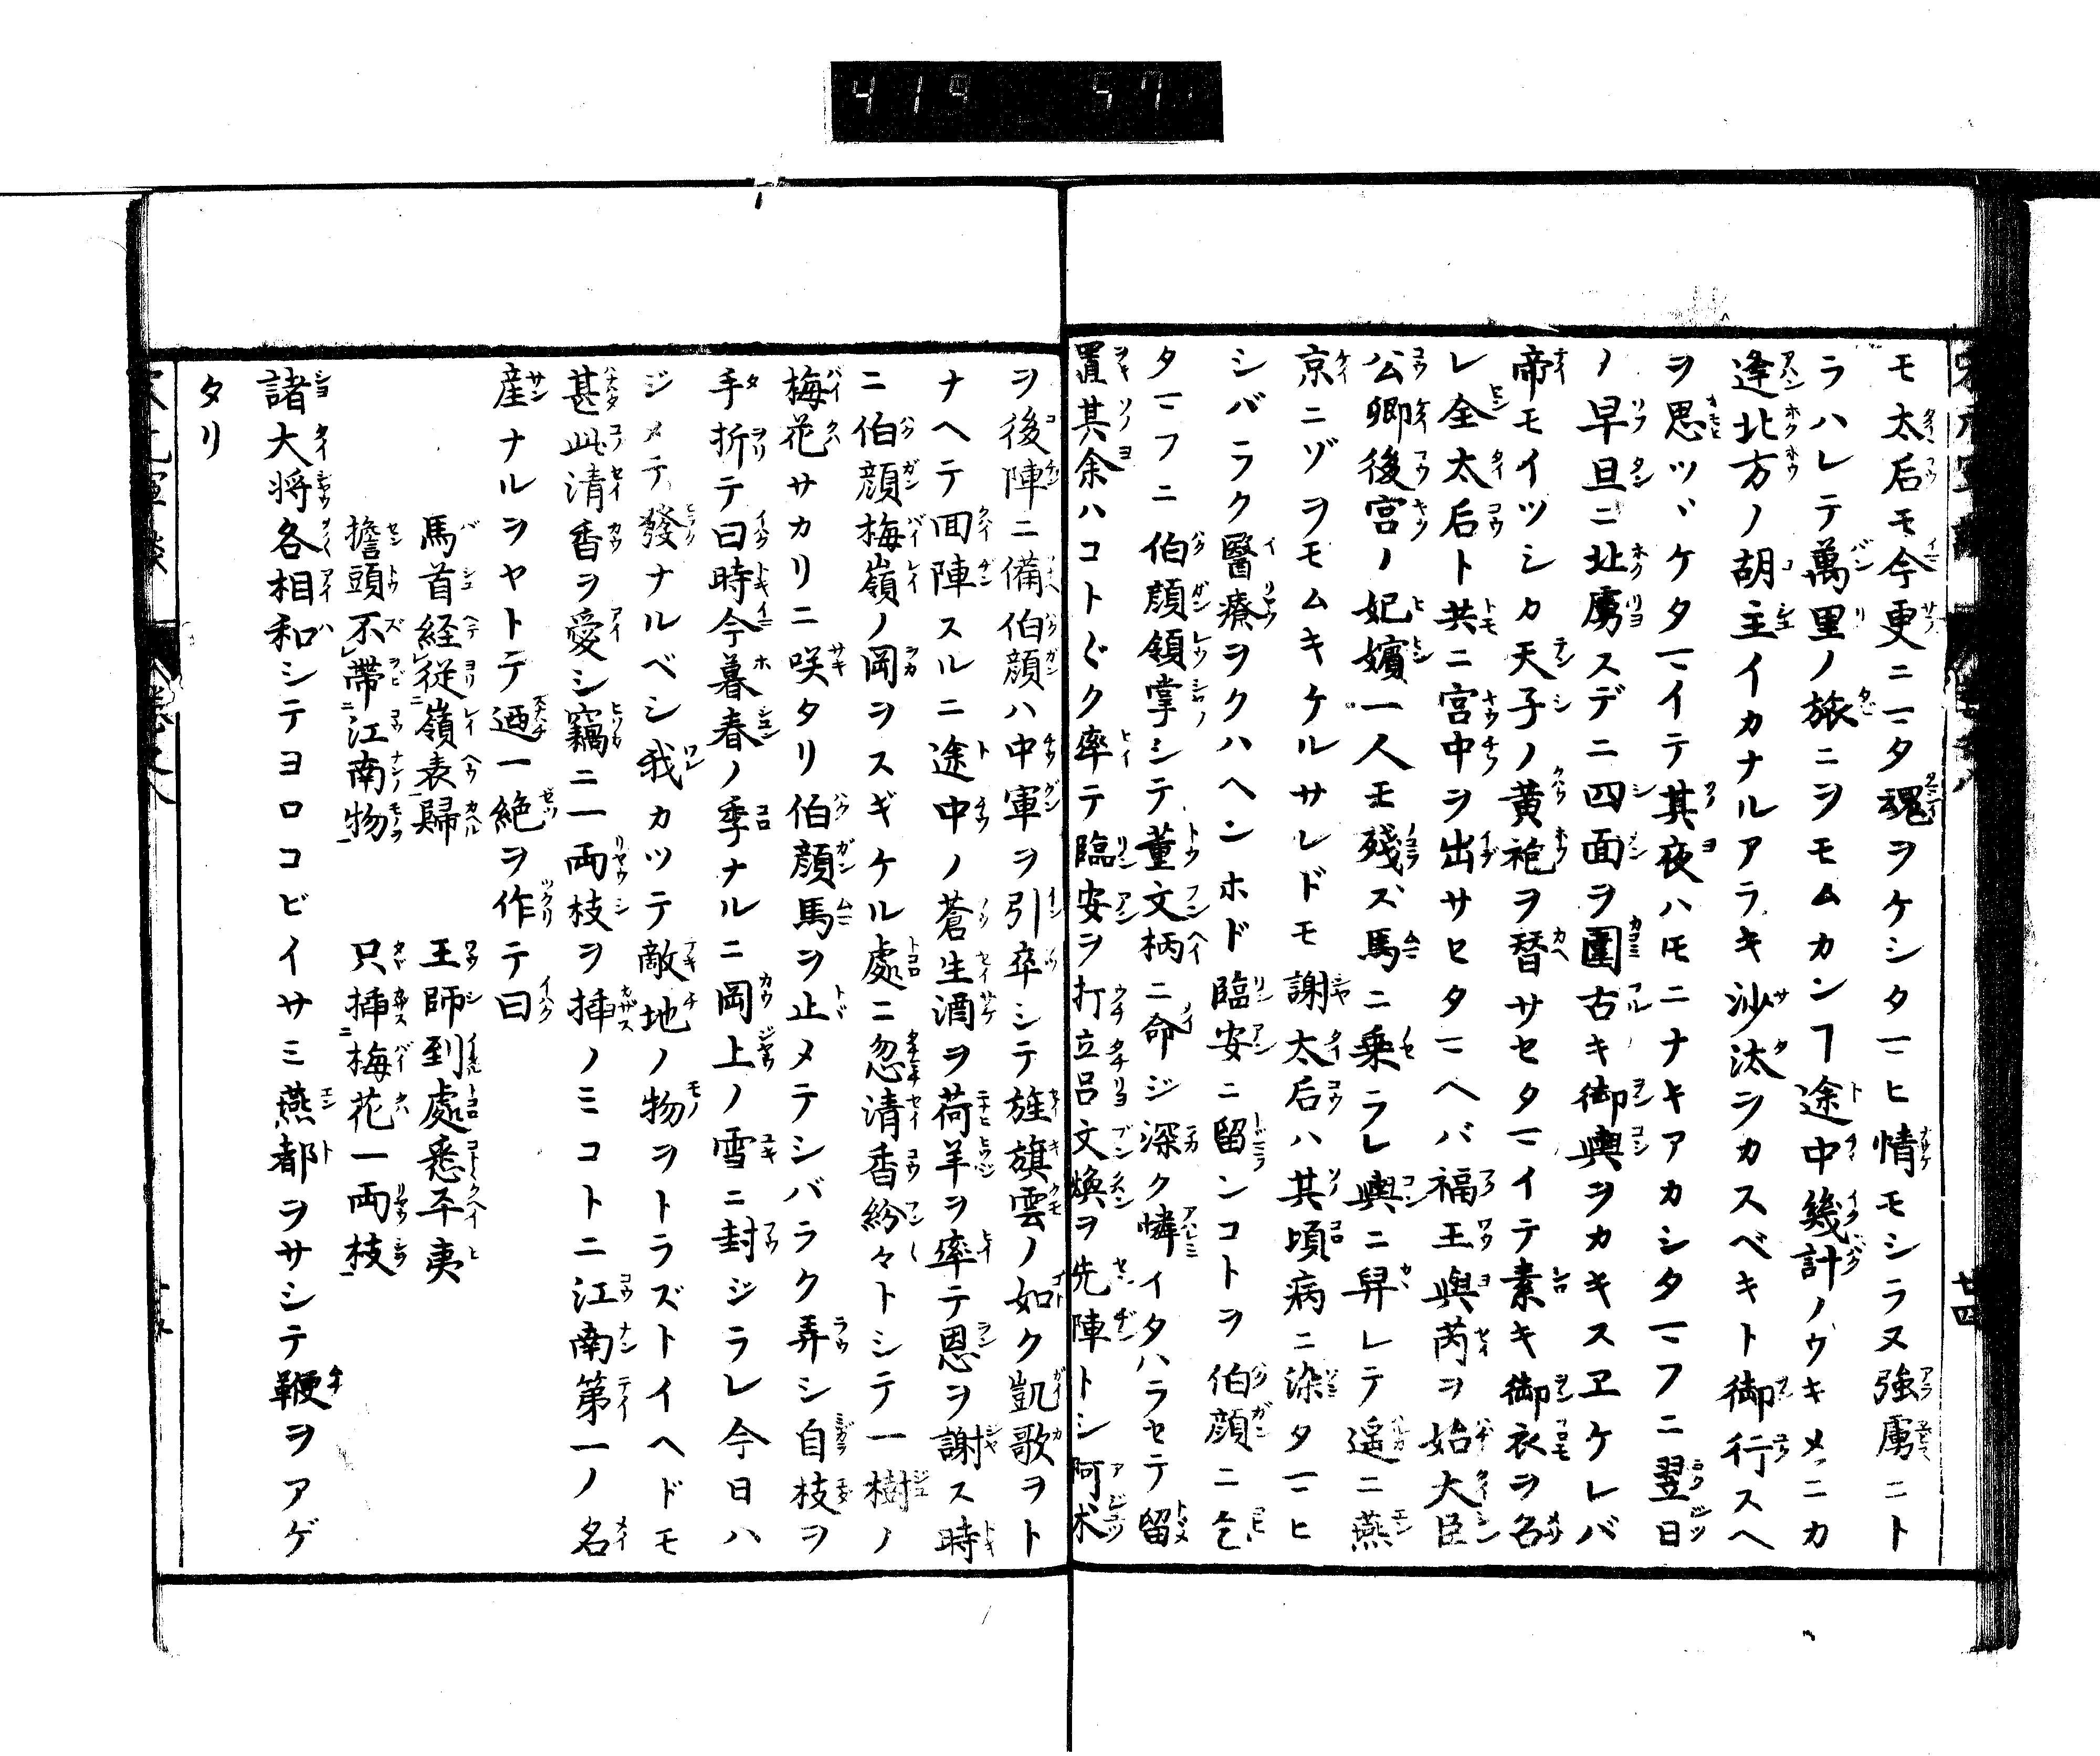 モ太后モ今更ニマタ魂ヲケシタマヒ情モシラヌ強虜ニト
ラハレテ萬里ノ旅ニヲモムカンヿ途中幾計ノウキメニカ
逢北方ノ胡主イカナルアラキ沙汰シカスベキト御行スヘ
ヲ思ツヾケタマイテ其夜ハ圧ニナキアカシタマフニ翌日
ノ早旦ニ北虜スデニ四面ヲ圍古キ御輿ヲカキスヱケレバ
帝モイツシカ天子ノ黄袍ヲ替サセタマイテ素キ御衣ヲ召
レ全太后ト共ニ宮中ヲ出サセタマヘバ福王與芮ヲ始大臣
公卿後宮ノ妃嬪一人モ残ズ馬ニ乗ラレ輿ニ舁レテ遥ニ燕
京ニゾヲモムキケルサレドモ謝太后ハ其頃病ニ染タマヒ
シバラク醫療ヲクハヘンホド臨安ニ留ンコトヲ伯顔ニ乞
タマフニ伯顔領掌シテ董文柄ニ命ジ深ク憐イタハラセテ留
置其余ハコトぐク率テ臨安ヲ打立呂文煥ヲ先陣トシ阿术
ヲ後陣ニ備伯顔ハ中軍ヲ引卒シテ旌旗雲ノ如ク凱歌ヲト
ナヘテ囬陣スルニ途中ノ蒼生酒ヲ荷羊ヲ率テ恩ヲ謝ス時
ニ伯顔梅嶺ノ岡ヲスギケル處ニ忽清香紛々トシテ一樹ノ
梅花サカリニ咲タリ伯顔馬ヲ止メテシバラク弄シ自枝ヲ
手折テ曰時今暮春ノ季ナルニ岡上ノ雪ニ封ジラレ今日ハ
ジメテ發ナルベシ我カツテ敵地ノ物ヲトラズトイヘドモ
甚此清香ヲ愛シ竊ニ一両枝ヲ挿ノミコトニ江南第一ノ名
産ナルヲヤトテ廼一絶ヲ作テ曰
馬首経従嶺表歸　王師到處悉平夷
擔頭不帯江南物　只挿梅花一両枝
諸大将各相和シテヨロコビイサミ燕都ヲサシテ鞭ヲアゲ
タリ